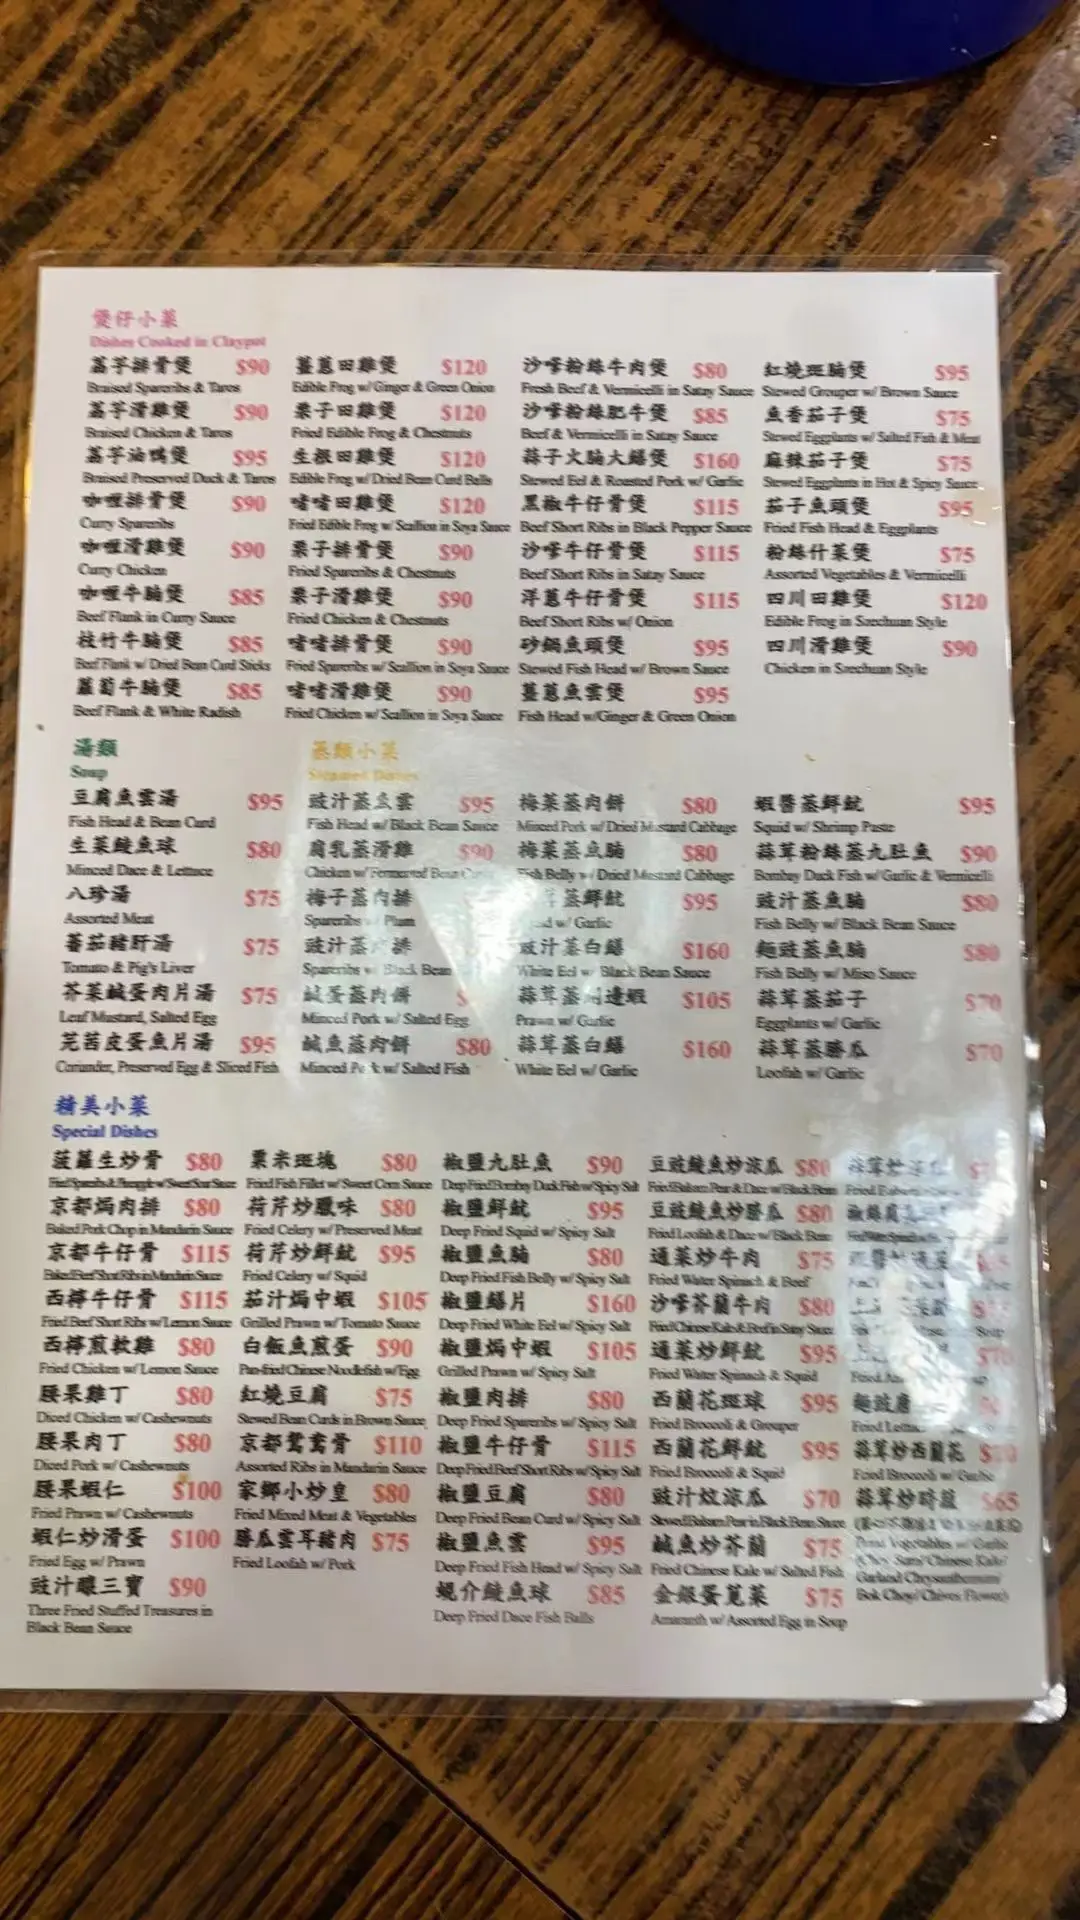 煲仔小菜
Dishes Cooked in Claypot
荔芋排骨煲 $90
Braised Spareribs & Taros
荔芋滑雞煲 $90
Braised Chicken & Taros
荔芋油鴨煲 $95
Braised Preserved Duck & Taros
咖喱排骨煲 $90
Curry Spareribs
咖喱滑雞煲 $90
Curry Chicken
咖喱牛腩煲 $85
Beef Flank in Curry Sauce
枝竹牛腩煲 $85
Beef Flank w/ Dried Bean Curd Sticks
蘿蔔牛腩煲 $85
Beef Flank & White Radish
薑蔥田雞煲 $120
Edible Frog w/ Ginger & Green Onion
栗子田雞煲 $120
Fried Edible Frog & Chestnuts
生根田雞煲 $120
Edible Frog w/ Dried Bean Curd Balls
啫啫田雞煲 $120
Fried Edible Frog w/ Scallion in Soya Sauce
栗子排骨煲 $90
Fried Spareribs & Chestnuts
栗子滑雞煲 $90
Fried Chicken & Chestnuts
啫啫排骨煲 $90
Fried Spareribs w/ Scallion in Soya Sauce
啫啫滑雞煲 $90
Fried Chicken w/ Scallion in Soya Sauce
沙嗲粉絲牛肉煲 $80
Fresh Beef & Vermicelli in Satay Sauce
沙嗲粉絲肥牛煲 $85
Beef & Vermicelli in Satay Sauce
蒜子火腩大鱔煲 $160
Stewed Eel & Roasted Pork w/ Garlic
黑椒牛仔骨煲 $115
Beef Short Ribs in Black Pepper Sauce
沙嗲牛仔骨煲 $115
Beef Short Ribs in Satay Sauce
洋蔥牛仔骨煲 $115
Beef Short Ribs w/ Onion
砂鍋魚頭煲 $95
Stewed Fish Head w/ Brown Sauce
薑蔥魚雲煲 $95
Fish Head w/Ginger & Green Onion
紅燒斑腩煲 $95
Stewed Grouper w/ Brown Sauce
魚香茄子煲 $75
Stewed Eggplants w/ Salted Fish & Meat
麻辣茄子煲 $75
Stewed Eggplants in Hot & Spicy Sauce
茄子魚頭煲 $95
Fried Fish Head & Eggplants
粉絲什菜煲 $75
Assorted Vegetables & Vermicelli
四川田雞煲 $120
Edible Frog in Szechuan Style
四川滑雞煲 $90
Chicken in Szechuan Style
湯類
Soup
豆腐魚雲湯 $95
Fish Head & Bean Curd
生菜鯪魚球 $80
Minced Dace & Lettuce
八珍湯 $75
Assorted Meat
蕃茄豬肝湯 $75
Tomato & Pig's Liver
芥菜鹹蛋肉片湯 $75
Leaf Mustard, Salted Egg
芫茜皮蛋魚片湯 $95
Coriander, Preserved Egg & Sliced Fish
蒸類小菜
Steamed Dishes
豉汁蒸魚雲 $95
Fish Head w/ Black Bean Sauce
腐乳蒸滑雞 $90
Chicken w/ Fermented Bean
梅子蒸肉排
Spareribs w/ Plum
豉汁蒸 排
Spareribs w/ Black Bean
鹹蛋蒸肉餅
Minced Pork w/ Salted Egg
鹹魚蒸肉餅 $80
Minced Pork w/ Salted Fish
梅菜蒸肉餅 $80
Minced Pork w/ Dried Mustard Cabbage
梅菜蒸魚腩 $80
Fish Belly w/ Dried Mustard Cabbage
蒸鮮魷 $95
w/ Garlic
豉汁蒸白鱔 $160
White Eel w/ Black Bean Sauce
蒜茸蒸 邊蝦 $105
Prawn w/ Garlic
蒜茸蒸白鱔 $160
White Eel w/ Garlic
蝦醬蒸鮮魷 $95
Squid w/ Shrimp Paste
蒜茸粉絲蒸九肚魚 $90
Bombay Duck Fish w/ Garlic & Vermicelli
豉汁蒸魚腩 $80
Fish Belly w/ Black Bean Sauce
麵豉蒸魚腩 $80
Fish Belly w/ Miso Sauce
蒜茸蒸茄子 $70
Eggplants w/ Garlic
蒜茸蒸勝瓜 $70
Loofah w/ Garlic
精美小菜
Special Dishes
菠蘿生炒骨 $80
Fried Spareribs & Pineapple w/ Sweet Sour Sauce
京都焗肉排 $80
Baked Pork Chop in Mandarin Sauce
京都牛仔骨 $115
Baked Beef Short Ribs in Mandarin Sauce
西檸牛仔骨 $115
Fried Beef Short Ribs w/ Lemon Sauce
西檸煎軟雞 $80
Fried Chicken w/ Lemon Sauce
腰果雞丁 $80
Diced Chicken w/ Cashewnuts
腰果肉丁 $80
Diced Pork w/ Cashewnuts
腰果蝦仁 $100
Fried Prawn w/ Cashewnuts
蝦仁炒滑蛋 $100
Fried Egg w/ Prawn
豉汁釀三寶 $90
Three Fried Stuffed Treasures in
Black Bean Sauce
粟米斑塊 $80
Fried Fish Fillet w/ Sweet Corn Sauce
荷芹炒臘味 $80
Fried Celery w/ Preserved Meat
荷芹炒鮮魷 $95
Fried Celery w/ Squid
茄汁焗中蝦 $105
Grilled Prawn w/ Tomato Sauce
白飯魚煎蛋 $90
Pan-fried Chinese Noodlefish w/Egg
紅燒豆腐 $75
Stewed Bean Curds in Brown Sauce
京都鴛鴦骨 $110
Assorted Ribs in Mandarin Sauce
家鄉小炒皇 $80
Fried Mixed Meat & Vegetables
勝瓜雲耳豬肉 $75
Fried Loofah w/ Pork
椒鹽九肚魚 $90
Deep Fried Bombay Duck Fish w/ Spicy Salt
椒鹽鮮魷 $95
Deep Fried Squid w/ Spicy Salt
椒鹽魚腩 $80
Deep Fried Fish Belly w/ Spicy Salt
椒鹽鱔片 $160
Deep Fried White Eel w/ Spicy Salt
椒鹽焗中蝦 $105
Grilled Prawn w/ Spicy Salt
椒鹽肉排 $80
Deep Fried Spareribs w/ Spicy Salt
椒鹽牛仔骨 $115
Deep Fried Beef Short Ribs w/ Spicy Salt
椒鹽豆腐 $80
Deep Fried Bean Curd w/ Spicy Salt
椒鹽魚雲 $95
Deep Fried Fish Head w/ Spicy Salt
蜆介鯪魚球 $85
Deep Fried Dace Fish Balls
豆豉鯪魚炒涼瓜 $80
Fried Balsam Pear & Dace w/ Black Bean
豆豉鯪魚炒勝瓜 $80
Fried Loofah & Dace w/ Black Bean
通菜炒牛肉 $75
Fried Water Spinach & Beef
沙嗲芥蘭牛肉 $80
Fried Chinese Kale & Beef in Satay Sauce
通菜炒鮮魷 $95
Fried Water Spinach & Squid
西蘭花斑球 $95
Fried Broccoli & Grouper
西蘭花鮮魷 $95
Fried Broccoli & Squid
豉汁炆涼瓜 $70
Stewed Balsam Pear in Black Bean Sauce
鹹魚炒芥蘭 $75
Fried Chinese Kale w/ Salted Fish
金銀蛋莧菜 $75
Amaranth w/ Assorted Egg in Soup
蒜茸炒
Fried
椒絲腐
麵豉
Fried
蒜茸炒西蘭花
Fried Broccoli w/ Garlic
蒜茸炒時蔬 $65
Vegetables w/ Garlic
(Choy Sum/ Chinese Kale/
Garland Chrysanthemum/
Bok Choy/ Chives Flower)